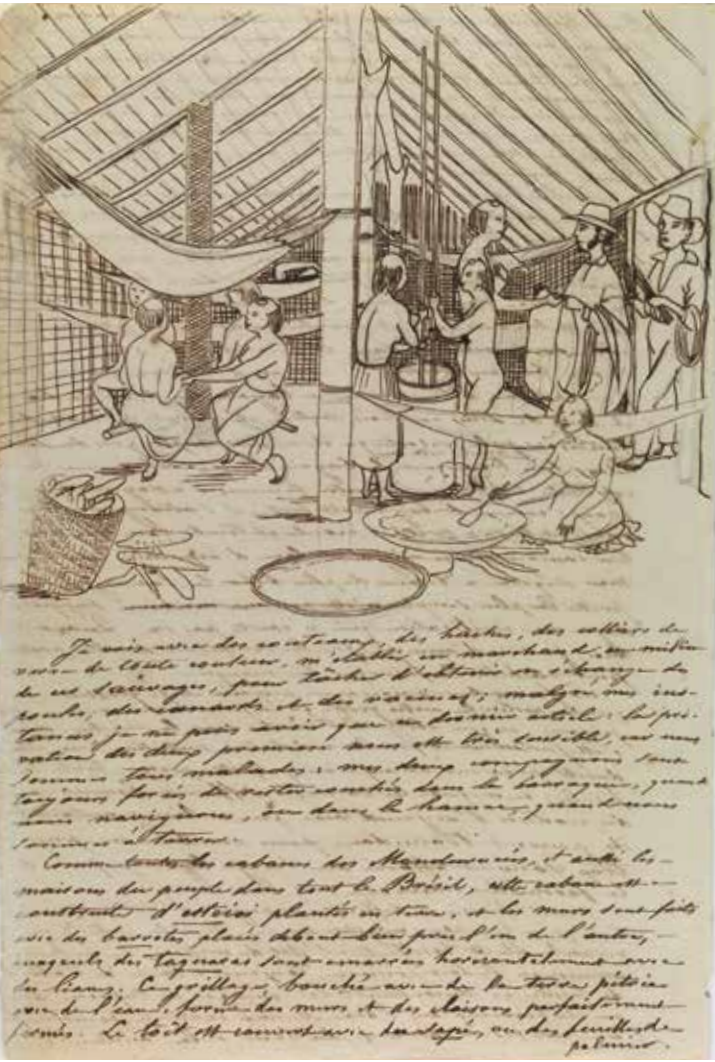 Je vais avec des couteaux, des haches, des colliers de
verre de toute couleur, m'établir en marchand, au milieu
de ces sauvages, pour tâcher d'obtenir en échange des
poules, des canards et des racines; malgré mes ins-
tances je ne puis avoir que ce dernier article: la pri-
vation des deux premiers nous est très sensible, car nous
sommes tous malades; mes deux compagnons sont
toujours forcés de rester couchés dans la barraque, quand
nous naviguons, ou dans le hamac, quand nous
sommes à terre.
Comme toutes les cabanes des Mandurucús, et aussi les
maisons du peuple dans tout le Brésil, cette cabane est
construite d'esteios plantés en terre, et les murs sont faits
avec des barrotes placés debout bien près l'un de l'autre,
auxquels des taquaras sont amarrées horizontalement avec
des lianes. Ce grillage, bouché avec de la terre pétrie
avec de l'eau, forme des murs et des cloisons parfaitement
fermés. Le toit est couvert avec du sapé, ou des feuilles de
palmier.